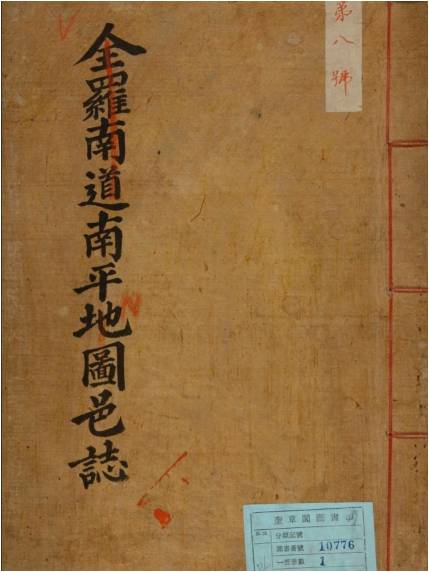 第八號
全羅南道南平地圖邑誌
奎章閣圖書
分類記號
圖書番號 10776
一書冊數 1